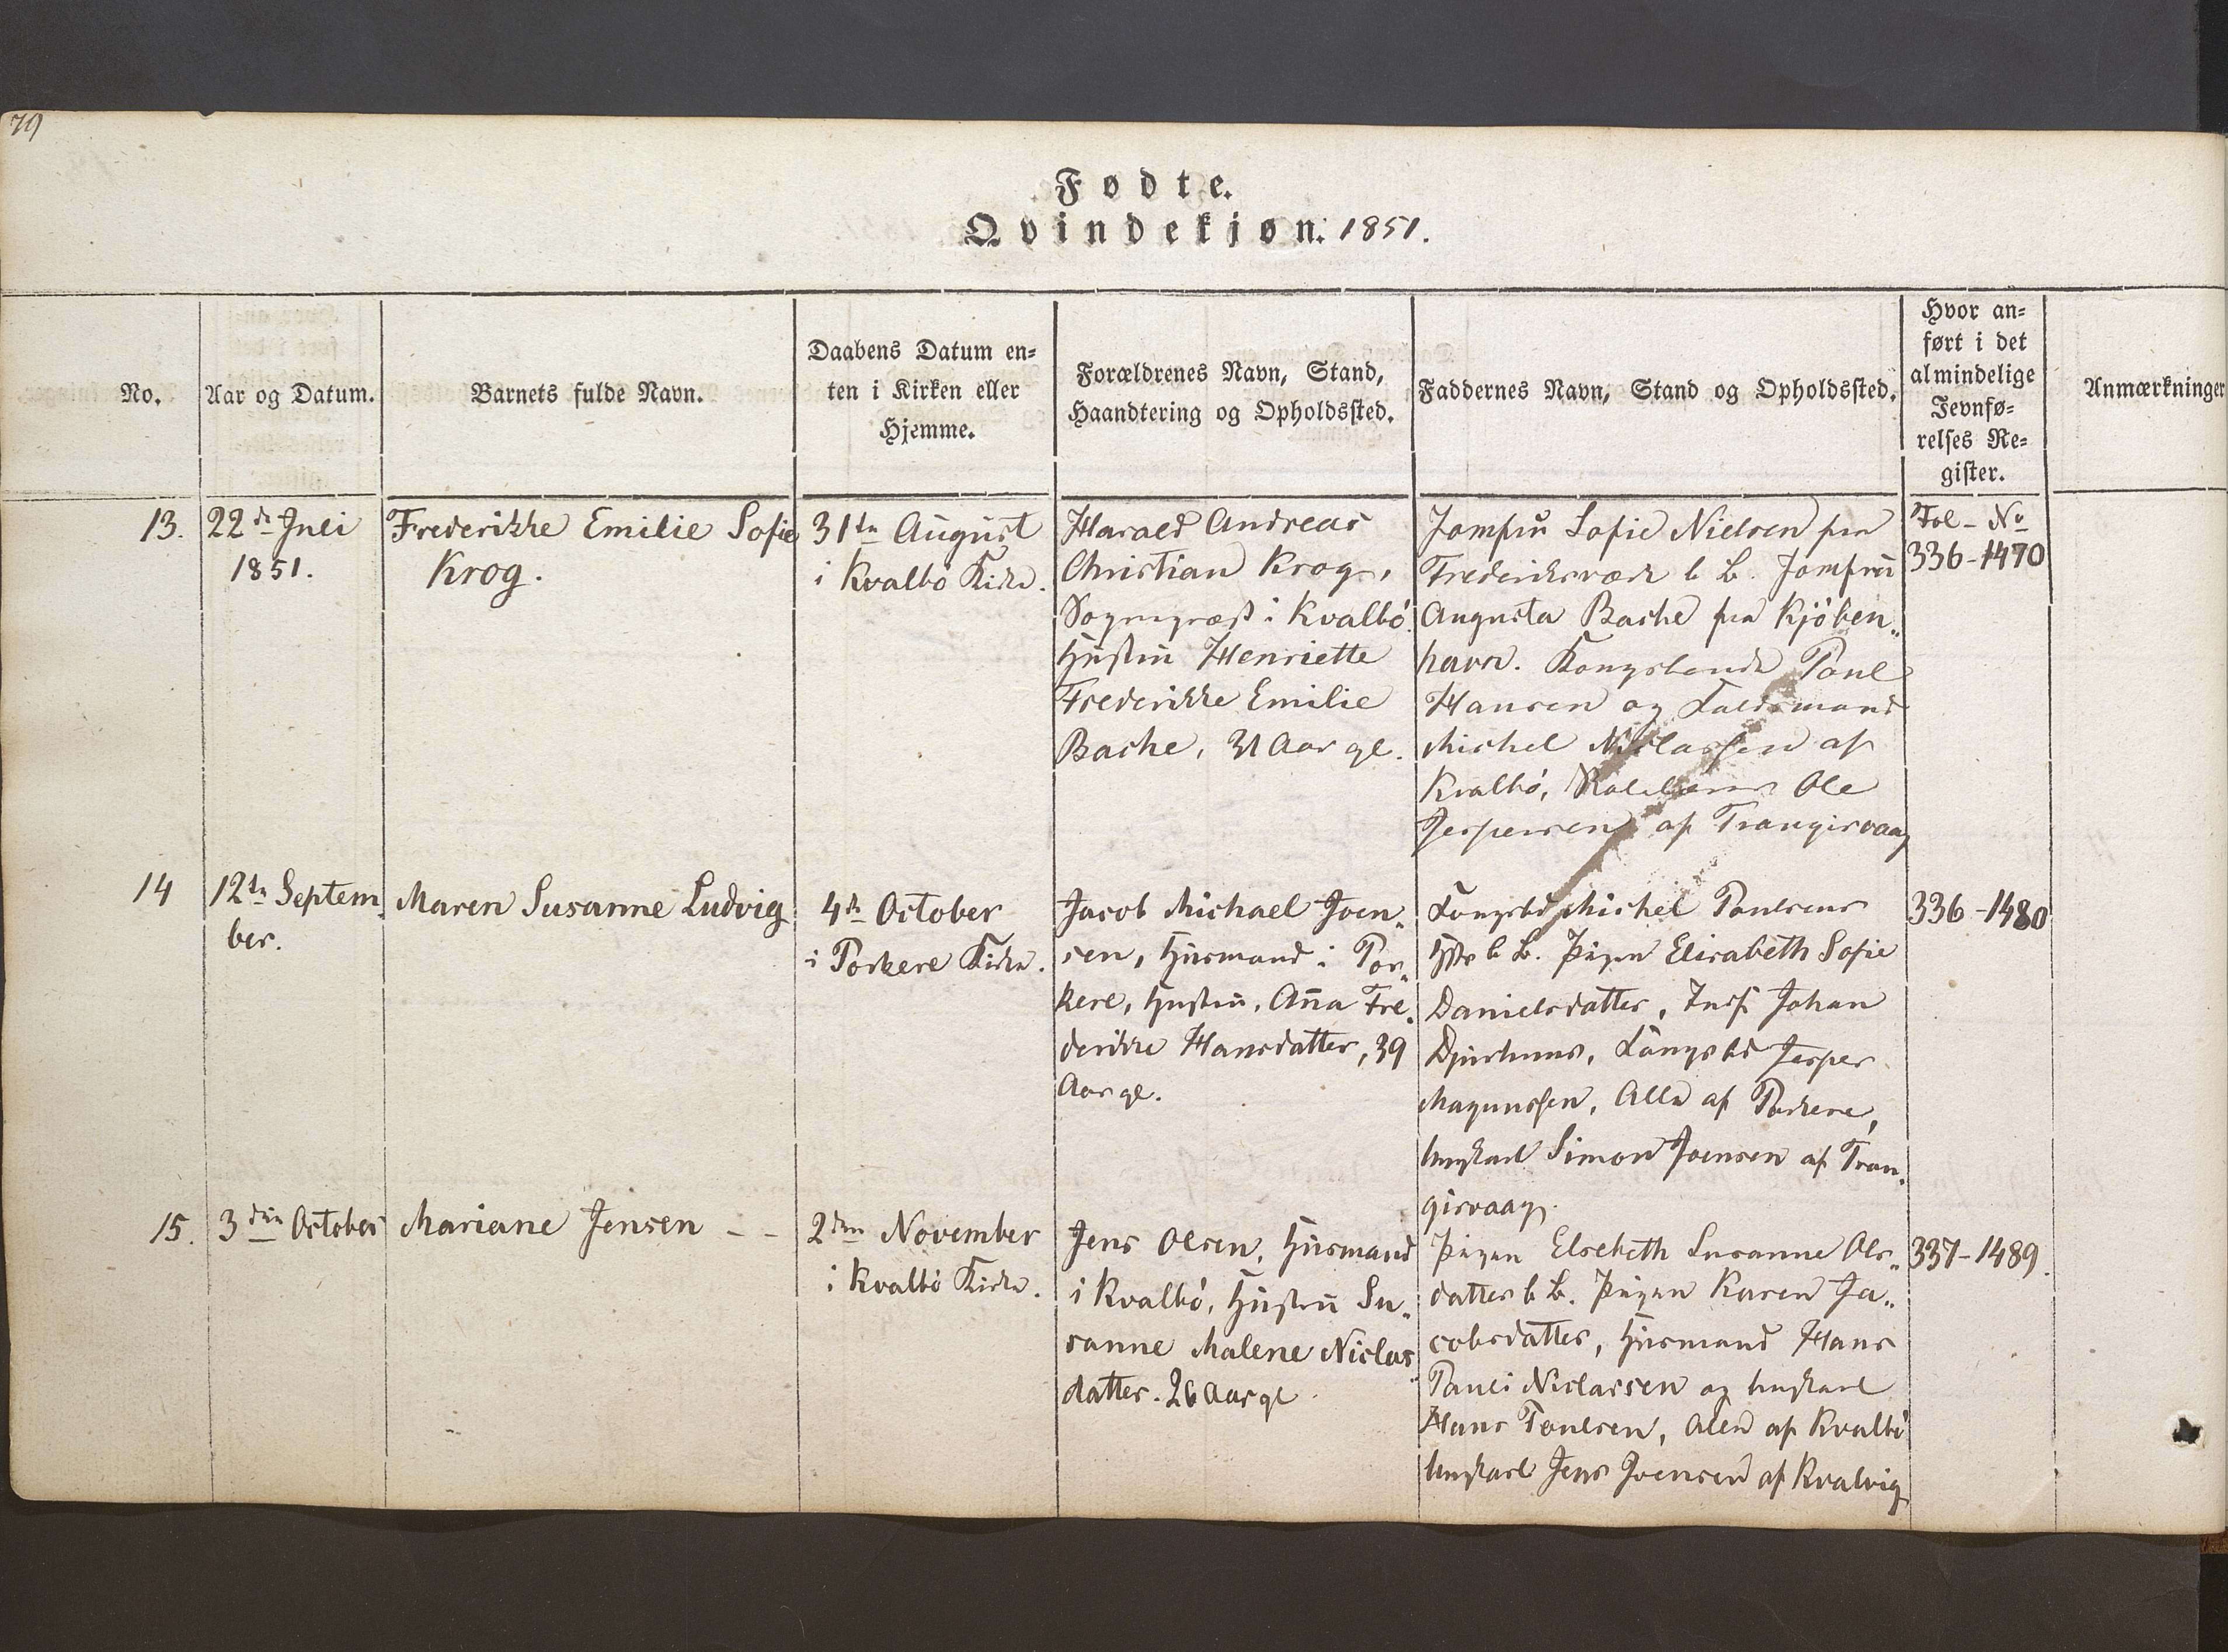 79
Fødte.
Qvindekjøn. 1851.
No.
Aar og Datum.
Barnets fulde Navn.
Daabens Datum en-
ten i Kirken eller
Hjemme.
Forældrenes Navn, Stand,
Haandtering og Opholdssted.
Faddernes Navn, Stand og Opholdssted.
Hvor an-
ført i det
almindelige
Jevnfø-
relses Re-
gister.
Anmærkninger
13.
22de Juli
1851.
Frederikke Emilie Sofie
Krog.
31te August
i Kvalbö Kirke.
Harald Andreas
Christian Krog,
Sognepræst i Kvalbö.
Hustru Henriette
Frederikke Emilie
Bache, 31 Aar gl.
Jomfru Sofie Nielsen fra
Frederiksværk b. B. Jomfru
Augusta Bache fra Kjöben„
havn. Kongsbonde Poul
Hansen og
Michel Niclassen af
Kvalbö, Ole
Jespersen af Trangisvaag
Fol - No
336-1470
14
12te Septem
ber.
Maren Susanne Ludvig
4de October
i Porkere Kirke.
Jacob Michael Joen„
sen, Huusmand i Por„
kere, Hustru, Anna Fre„
derikke Hansdatter, 39
Aar gl.
Michel Poulsens
b. B. Pigen Elisabeth Sofie
Danielsdatter, Johan
Jesper
Magnussen, Alle af Porkere,
Ungkarl Simon Joensen af Tran„
gisvaag.
336-1480
15.
3die October
Mariane Jensen - -
2den November
i Kvalbö Kirke.
Jens Olsen, Huusmand
i Kvalbö, Hustru Su„
sanne Malene Niclas„
datter. 26 Aar gl.
Pigen Elsebeth Susanne Ols„
datter b. B. Pigen Karen Ja„
cobsdatter, Huusmand Hans
Pauli Niclassen og Ungkarl
Hans Poulsen, Alle af Kvalbö
Ungkarl Jens Joensen af Kvalvig
337-1489.